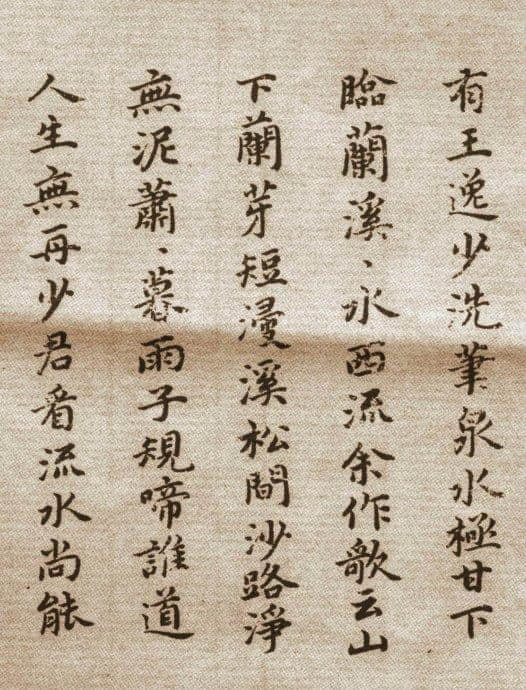 有王逸少洗筆泉水極甘下
臨蘭溪、水西流余作歌云山
下蘭芽短漫溪松間沙路淨
無泥蕭、暮雨子規啼誰道
人生無再少君看流水尚能